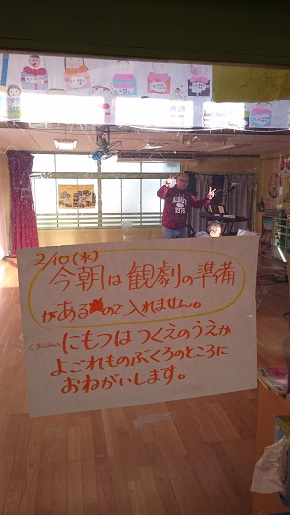 2/10(水)
今朝は観劇の準備
があるので入れません。
くまぐみさん にもつはつくえのうえか
よごれものぶくろのところに
おねがいします。